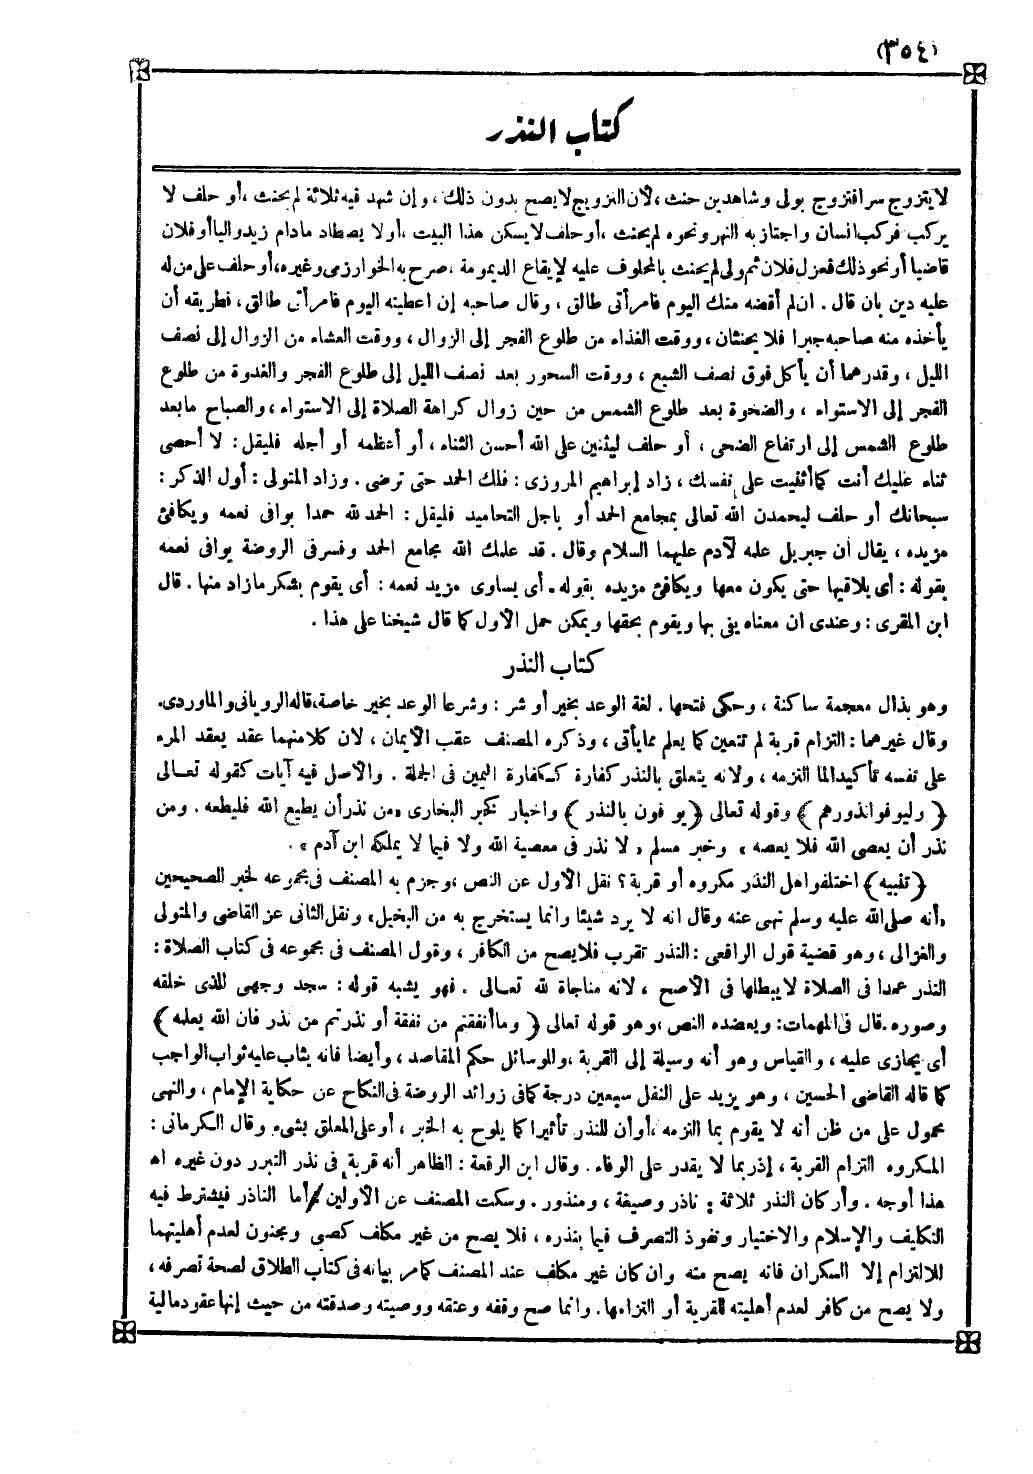 (٣٥٤)
كتاب النذر
لا يتزوج سرا فتزوج بولى وشاهدين حنث ، لأن التزويج لا يصح بدون ذلك ، وإن شهد فيه ثلاثة لم يحنث ، أو حلف لا
يركب فركب انسان واجتاز به النهر ونحوه لم يحنث ، أو حلف لا يسكن هذا البيت ، أو لا يصطاد مادام زيد واليا أو فلان
قاضيا أو نحو ذلك فعزل فلان ثم ولى لم يحنث بالمحلوف عليه لإيقاع الديمومة ، صرح به الخوارزمى وغيره ، أو حلف على من له
عليه دين بان قال . ان لم أقضه منك اليوم فامرأتى طالق ، وقال صاحبه إن اعطيته اليوم فامرأتى طالق ، فطريقه أن
يأخذه منه صاحبه جبرا فلا يحنثان ، ووقت الغذاء من طلوع الفجر إلى الزوال ، ووقت العشاء من الزوال إلى نصف
الليل ، وقدرهما أن يأكل فوق نصف الشبع ، ووقت السحور بعد نصف الليل إلى طلوع الفجر والغدوة من طلوع
الفجر إلى الاستواء ، والضحوة بعد طلوع الشمس من حين زوال كراهة الصلاة إلى الاستواء ، والصباح ما بعد
طلوع الشمس إلى ارتفاع الضحى ، أو حلف ليثنين على الله أحسن الثناء ، أو أعظمه أو أجله فليقل : لا أحصى
ثناء عليك أنت كما أثنيت على نفسك ، زاد إبراهيم المروزى : فلك الحمد حتى ترضى . وزاد المتولى : أول الذكر :
سبحانك أو حلف ليحمدن الله تعالى بمجامع الحمد أو باجل التحاميد فليقل : الحمد لله حمدا يوافى نعمه ويكافئ
مزيده ، يقال أن جبريل علمه لآدم عليهما السلام وقال . قد علمك الله مجامع الحمد وفسر فى الروضة يوافى نعمه
بقوله : أى يلاقيها حتى يكون معها ويكافئ مزيده بقوله . أى يساوى مزيد نعمه : أى يقوم بشكر مازاد منها . قال
ابن المقرى : وعندى ان معناه يفى بها ويقوم بحقها ويمكن حمل الأول كما قال شيخنا على هذا .
كتاب النذر
وهو بذال معجمة ساكنة ، وحكى فتحها . لغة الوعد بخير أو شر : وشرعا الوعد بخير خاصة ، قاله الرويانى والماوردى .
وقال غيرهما : التزام قربة لم تتعين كما يعلم مما يأتى ، وذكره المصنف عقب الأيمان ، لان كلا منهما عقد يعقد المرء
على نفسه تأكيدا لما التزمه ، ولانه يتعلق بالنذر كفارة ككفارة اليمين فى الجملة . والاصل فيه آيات كقوله تعالى
﴿ وليوفوا نذورهم ﴾ وقوله تعالى ﴿ يوفون بالنذر ﴾ واخبار كخبر البخارى « من نذر أن يطيع الله فليطعه . ومن
نذر أن يعصى الله فلا يعصه » وخبر مسلم « لا نذر فى معصية الله ولا فيما لا يملكه ابن آدم » .
﴿ تنبيه ﴾ اختلفوا هل النذر مكروه أو قربة ؟ نقل الأول عن النص ، وجزم به المصنف فى مجموعه لخبر الصحيحين
« أنه صلى الله عليه وسلم نهى عنه وقال انه لا يرد شيئا وانما يستخرج به من البخيل » ونقل الثانى عن القاضى والمتولى
والغزالى ، وهو قضية قول الرافعى : النذر تقرب فلا يصح من الكافر ، وقول المصنف فى مجموعه فى كتاب الصلاة :
النذر عمدا فى الصلاة لا يبطلها فى الأصح ، لانه مناجاة لله تعالى . فهو يشبه قوله : سجد وجهى للذى خلقه
وصوره . قال فى المهمات : ويعضده النص ، وهو قوله تعالى ﴿ وما أنفقتم من نفقة أو نذرتم من نذر فان الله يعلمه ﴾
أى يجازى عليه ، والقياس وهو أنه وسيلة إلى القربة ، وللوسائل حكم المقاصد ، وأيضا فانه يثاب عليه ثواب الواجب
كما قاله القاضى الحسين ، وهو يزيد على النفل سبعين درجة كما فى زوائد الروضة فى النكاح عن حكاية الإمام ، والنهى
محمول على من ظن أنه لا يقوم بما التزمه ، أو أن للنذر تأثيرا كما يلوح به الخبر ، أو على المعلق بشىء وقال الكرمانى :
المكروه التزام القربة ، إذ ربما لا يقدر على الوفاء . وقال ابن الرفعة : الظاهر أنه قربة فى نذر التبرر دون غيره اه
هذا أوجه . وأركان النذر ثلاثة : ناذر وصيغة ، ومنذور . وسكت المصنف عن الأولين / أما الناذر فيشترط فيه
التكليف والإسلام والاختيار ونفوذ التصرف فيما ينذره ، فلا يصح من غير مكلف كصبى ومجنون لعدم أهليتهما
للالتزام إلا السكران فانه يصح منه وان كان غير مكلف عند المصنف كما مر بيانه فى كتاب الطلاق لصحة تصرفه ،
ولا يصح من كافر لعدم أهليته للقربة أو التزامها . وانما صح وقفه وعتقه ووصيته وصدقته من حيث إنها عقود مالية